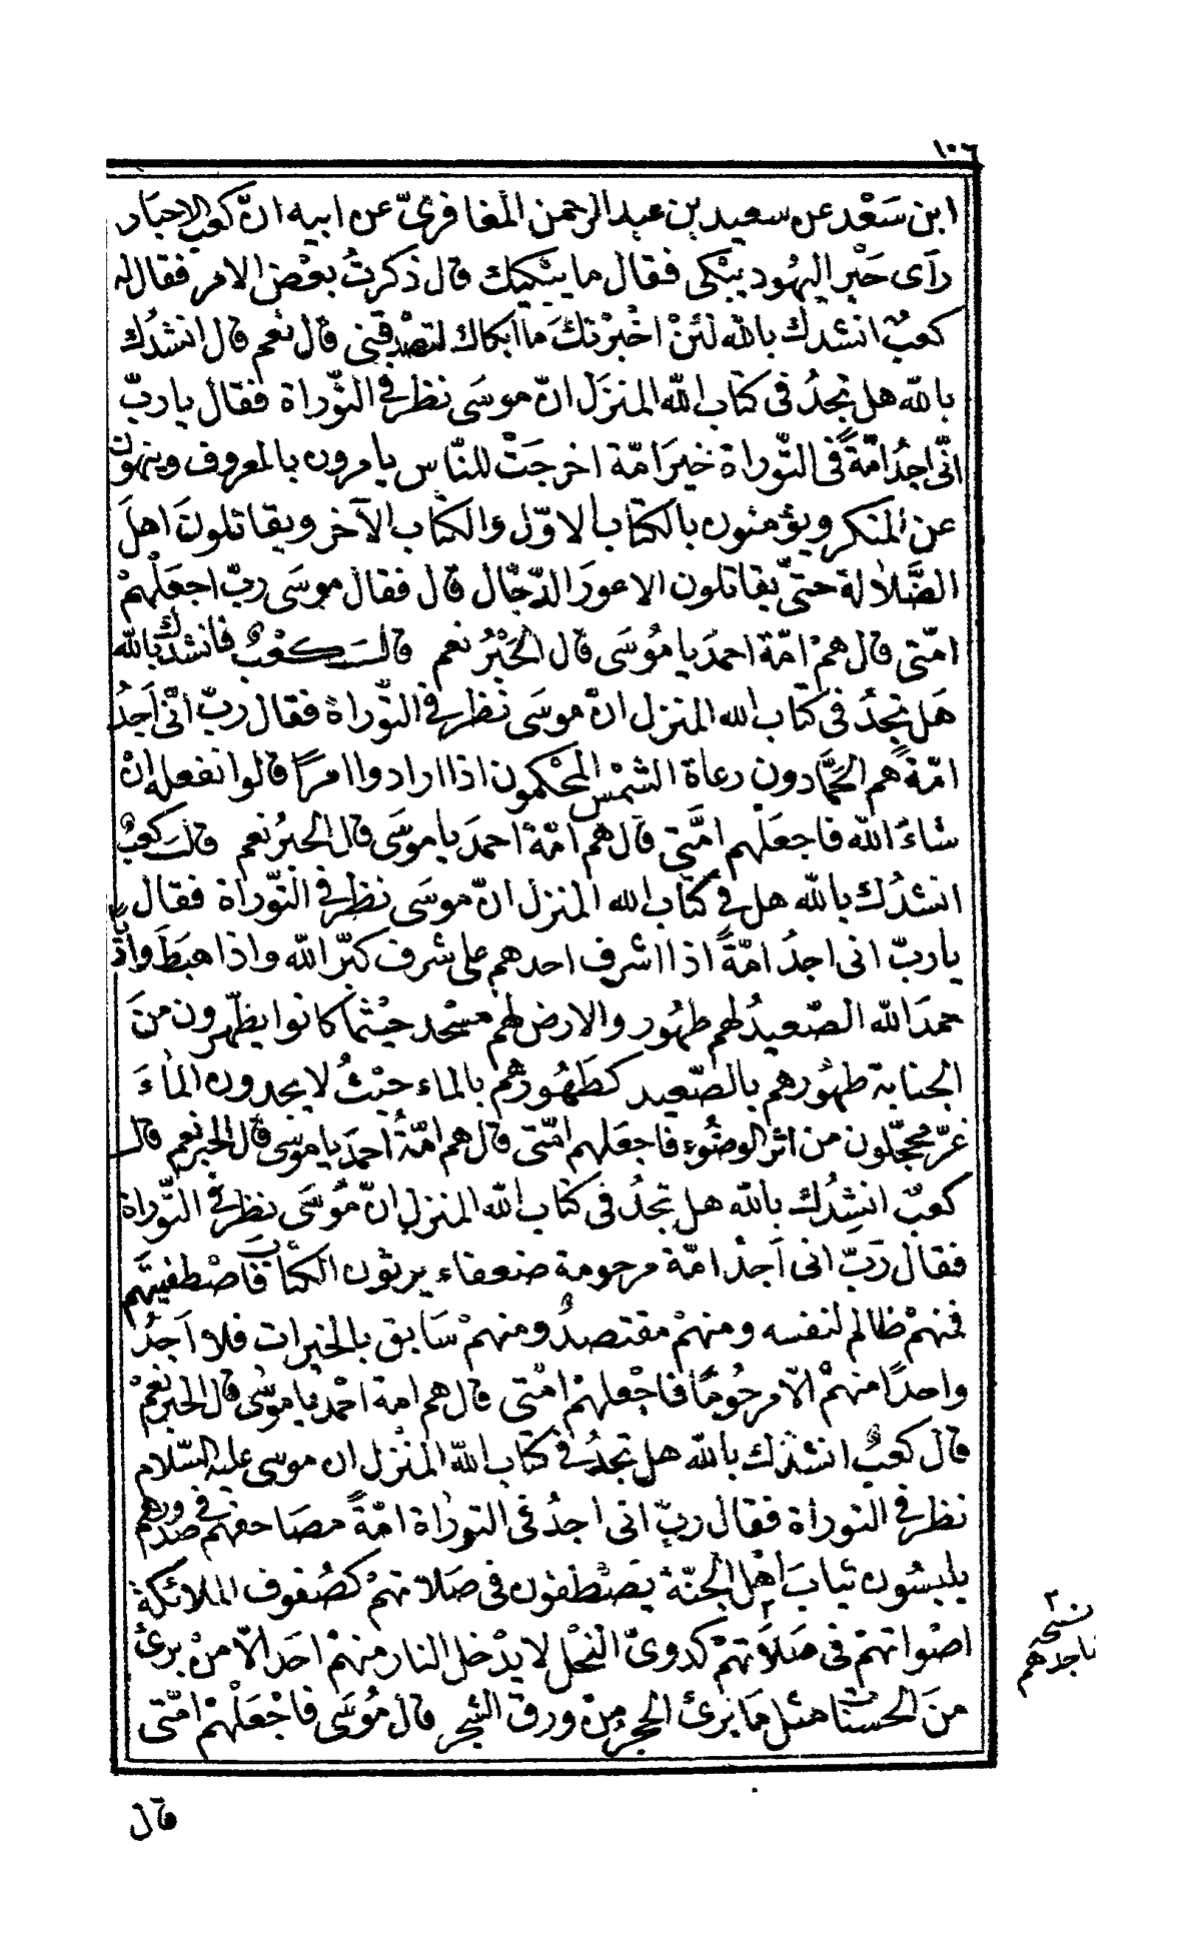 ١٠٦
ابن سَعْد عن سعيد بن عبد الرحمن المغافرىّ عن ابيه انّ كعب الاحبار
رآى حَبْر اليهُود يبْكى فقال ما يبْكيك قال ذكرتُ بعْض الامر فقال له
كعبٌ انشدك بالله لئنْ اخْبرْتكَ ما ابكاك لتصْدقنى قال نعم قال انشدُك
بالله هل تجدُ فى كتاب الله المنزَل انّ موسَى نظر فى التّوراة فقال يا ربّ
انّى اجدُ امّةً فى التّوراة خيرَ امّة اخرجَتْ للنّاس يامرون بالمعروف وينهون
عن المنكر ويؤمنون بالكتاب الاوّل والكتاب الآخر ويقاتلونَ اهلَ
الضّلالة حتىّ يقاتلون الاعورَ الدّجّال قال فقال موسَى ربّ اجعَلْهمْ
امّتى قال همْ امّة احمدَ يا مُوسَى قال الحَبْرُ نعم قال كعْبٌ فانشدك بالله
هَل تجدُ فى كتاب الله المنزل انّ موسَى نظر فى التّوراة فقال ربّ انّى اَجدُ
امّةً هم الحَمّادون رعاة الشمْس المحْكمون اذا ارادوا امرًا قالوا نفعله انْ
شاءَ الله فاجعَلهم امَّتى قال هم امّة احمدَ يا موسَى قال الحَبرُ نعم قال كعبٌ
انشدُك بالله هل فى كتاب الله المنزل انّ موسَى نظر فى التّوراة فقال
يا ربّ انى اجدُ امّةً اذا اشرف احدهم على شرف كبّر الله واذا هبَطَ واديا
حمدَ الله الصّعيدُ لهم طهُور والارض لهم مسْجد حيْثما كانوا يطّهرون منَ
الجنابة طهُورهم بالصّعيد كطَهُورهم بالماء حيْثُ لا يجدون المآءَ
غرّ محجّلون من اثر الوضُوء فاجعَلهم امّتى قال هم امّةُ احمدَ يا موسى قال الحبر نعم قال
كعبٌ انشِدُك بالله هل تجدُ فى كتاب الله المنزل انّ مُوسَى نظر فى التّوراة
فقال رَبّ انى اَجدُ امّة مرحومة ضعفاء يرثون الكتاب فاصْطفيتَهم
فمنهمْ ظالم لنفسه ومنهمْ مقتصدٌ ومنهمْ سَابق بالخيرات فلا اَجدُ
واحدًا منهمْ الّا مرحُومًا فاجْعلهمْ امّتى قال هم امة احْمدَ يا موسى قال الحبر نعمْ
قال كعبٌ انشدُك بالله هل تجدُ فى كتاب الله المنْزل ان موسى عليه السّلام
نظر فى التوراة فقال ربّ انى اجدُ فى التوراة امّةً مصَاحفهم فى صدورهم
يلبسُون ثيابَ اهْل الجنّة يصْطفون فى صَلاتهمْ كصُفوف الملائكة
اصْواتهمْ فى صَلَاتهمْ كدوىّ النحْل لا يدْخل النار منهمْ احَد الّا منْ برئ
منَ الحسنات مثل مَا برئ الحجر منْ ورق الشجر قال مُوسَى فاجْعَلْهمْ امّتى
نسخة
ناجدهم
قال